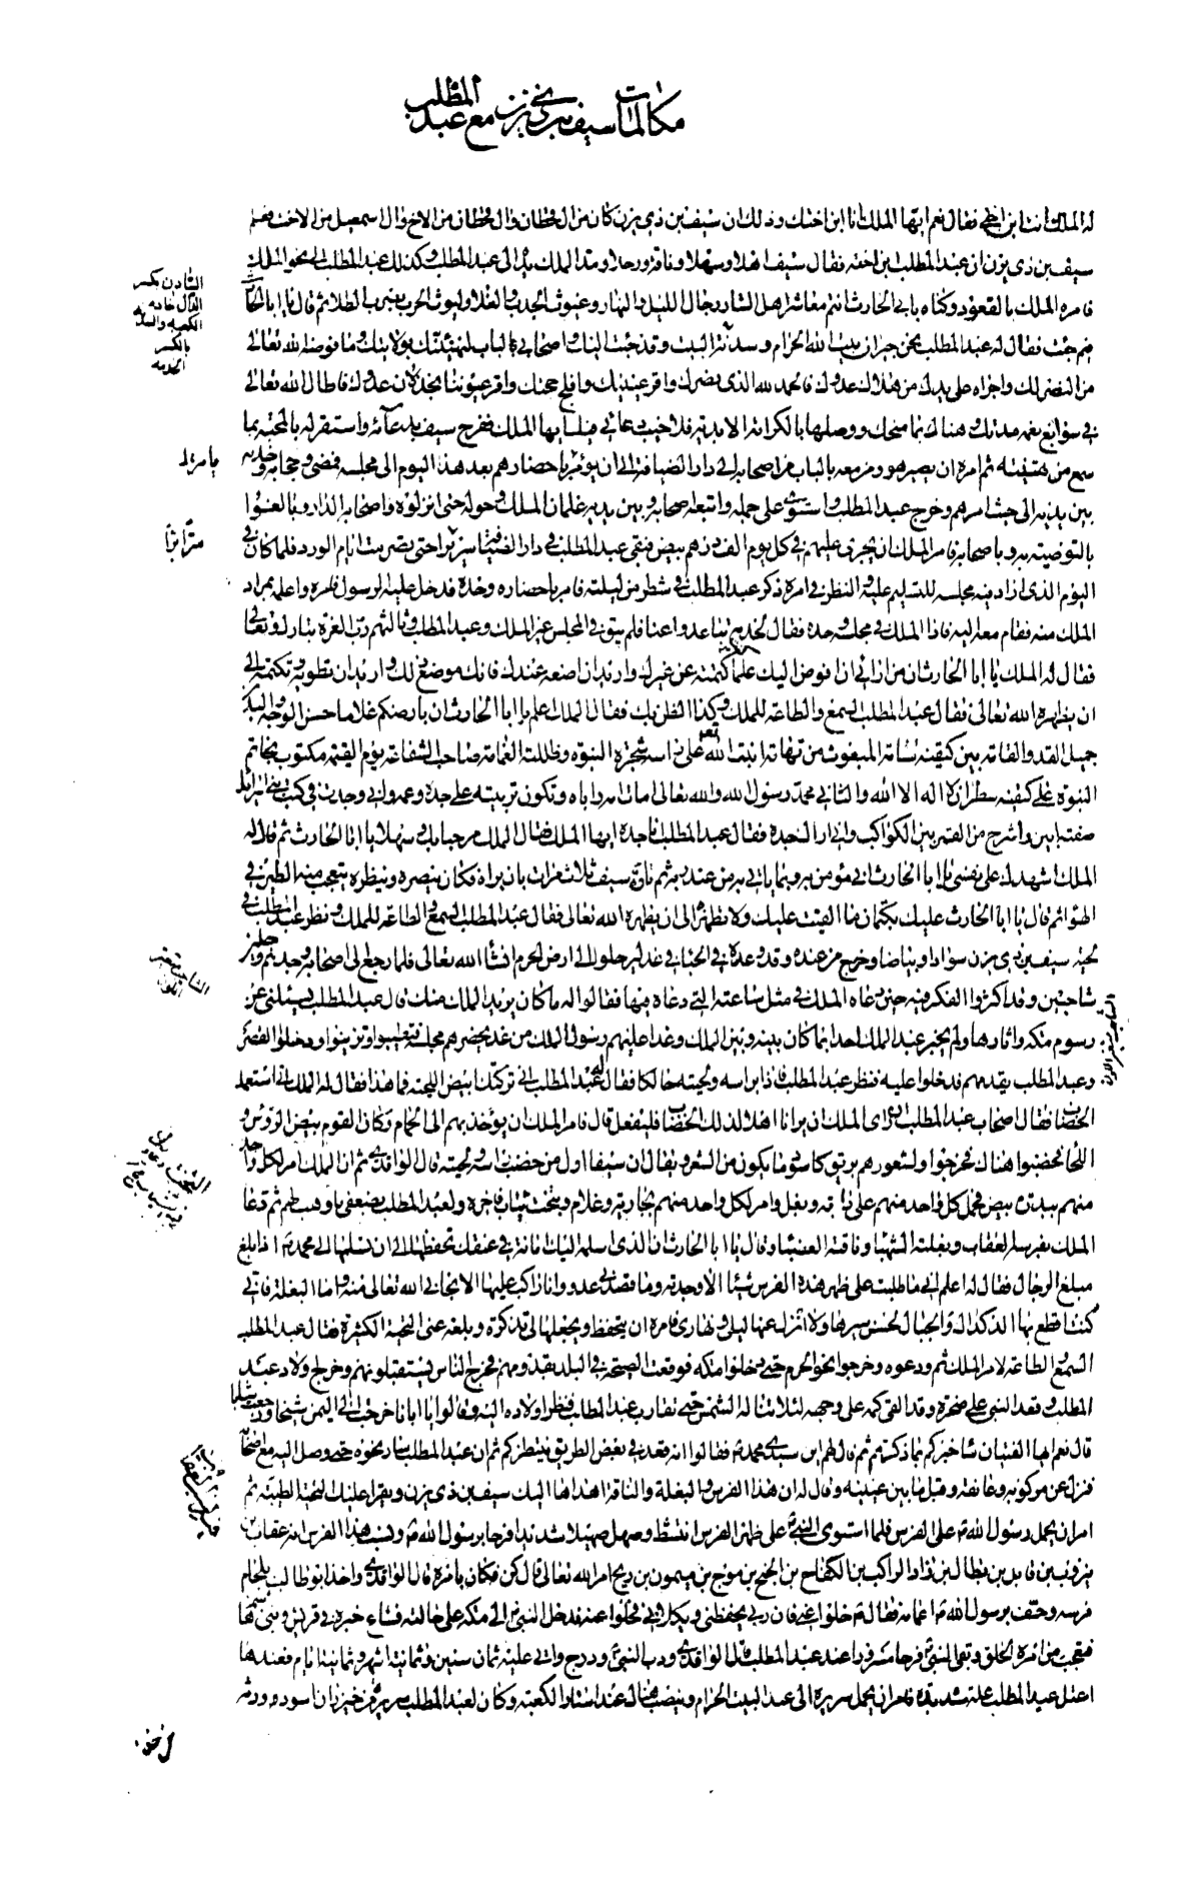 مكالمات سيف بن ذي يزن مع عبد المطلب
له الملك انت ابن اختي فقال نعم ايها الملك انا ابن اختك وذلك ان سيف بن ذي يزن كان من ال قحطان وال قحطان من الاخ وال اسمعيل من الاخت فعلم
سيف بن ذي يزن ان عبد المطلب ابن اخته فقال سيف اهلا وسهلا وناقة ورحلا ومد الملك يده الى عبد المطلب وكذلك عبد المطلب الى نحو الملك
فامره الملك بالقعود وكناه بابي الحارث انتم معاشر اهل الشار رجال الليل والنهار وغيوث الجدب والغلا وليوث الحرب بضرب الطلا ثم قال يا ابا الحارث
فيم جئت فقال له عبد المطلب نحن جيران بيت الله الحرام وسدنة البيت وقد جئت اليك واصحابي بالباب لنهنئك بولايتك وما فوضه الله تعالى
من النصر لك واجراه على يديك من هلاك عدوك فالحمد لله الذي نصرك واقر عينيك وافلج حجتك واقر عيوننا بخذلان عدوك فاطال الله تعالى
في سوابغ نعمه مدتك وهناك بما منحك ووصلها بالكرامة الابدية فلا خيب دعائي فيك ايها الملك ففرح سيف بدعائه واستقر له بالمحبة بما
سمع من تهنيته ثم امره ان يصير هو ومن معه بالباب من اصحابه الى دار الضيافة الى ان يؤمر باحضارهم بعد هذا اليوم الى مجلسه فمضى وحجابه وخدمه
بين يديه الى حيث امرهم وخرج عبد المطلب واستوى على جمله واتبعه اصحابه وبين يديه غلمان الملك وحوله حتى انزلوه واصحابه الدار وبالغوا
بالتوصية به وباصحابه فامر الملك ان يجرى عليهم في كل يوم الف درهم بيض فبقي عبد المطلب في دار الضيافة حتى تصرمت ايام الورد فلما كان في
اليوم الذي اراد فيه مجلسه للتسليم عليه والنظر في امره ذكر عبد المطلب في شطر من ليلته فامر باحضاره وحده فدخل عليه الرسول فامره واعلمه بمراد
الملك منه فقام معه اليه فاذا الملك في مجلسه وحده فقال لخدمه تباعدوا عنا فلم يبق في المجلس غير الملك وعبد المطلب وثالثهم رب العزة تبارك وتعالى
فقال له الملك يا ابا الحارث ان من ارائي ان افوض اليك علما كتمته عن غيرك واريد ان اضعه عندك فانك موضع ذلك واريد ان تطويه وتكتمه الى
ان يظهره الله تعالى فقال عبد المطلب السمع والطاعة للملك وكذا الظن بك فقال الملك اعلم يا ابا الحارث ان بارضكم غلاما حسن الوجه والبدن
جميل القد والقامة بين كتفيه شامة المبعوث من تهامة انبت الله تعالى على راسه شجرة النبوة وظللته الغمامة صاحب الشفاعة يوم القيمة مكتوب بخاتم
النبوة على كتفيه سطران لا اله الا الله والثاني محمد رسول الله والله تعالى امات امه واباه وتكون تربيته على جده وعمه واني وجدت في كتب بني اسرائيل
صفته ابين واشرح من القمر بين الكواكب واني اراك جده فقال عبد المطلب انا جده ايها الملك فقال الملك مرحبا بك وسهلا يا ابا الحارث ثم قال له
الملك اشهدك على نفسي يا ابا الحارث اني مؤمن به وبما ياتي به من عند ربه ثم تاوه سيف ثلاث مرات بان يراه فكان ينصره وينظره يتعجب منه الطير في
الهواء ثم قال يا ابا الحارث عليك بكتمان ما القيت عليك ولا تظهره الى ان يظهره الله تعالى فقال عبد المطلب السمع والطاعة للملك ونظر عبد المطلب في
لحية سيف بن ذي يزن سوادا وبياضا وخرج من عنده وقد وعده في الحباء في غد
شاحبين وقد اكثروا الفكر فيه حين دعاه الملك في مثل ساعته التي دعاه فيها فقالوا له ما كان يريد الملك منك قال عبد المطلب يسئلني عن
رسوم مكة واثارها ولم يخبر عبد المطلب احدا بما كان بينه وبين الملك وغدا عليهم رسول الملك من غد يحضرهم مجلسه فتطيبوا وتزينوا ودخلوا القصر
وعبد المطلب يقدمهم فدخلوا عليه فنظر عبد المطلب فاذا براسه ولحيته حالكا فقال له عبد المطلب اني تركتك ابيض اللحية فما هذا فقال له الملك اني استعمل
الخضاب فقال اصحاب عبد المطلب ان راى الملك ان يرانا اهلا لذلك الخضاب فليفعل قال فامر الملك ان يؤخذ بهم الى الحمام وكان القوم بيض الرؤس و
اللحا فخضبوا هناك فخرجوا ولشعورهم بريق كاسود ما يكون من الشعر ويقال ان سيفا اول من خضب راسه ولحيته قال الواقدي ثم ان الملك امر لكل واحد
منهم ببدرة بيض فحمل كل واحد منهم على دابة وبغل وامر لكل واحد منهم بجارية وغلام وتخت ثياب فاخرة ولعبد المطلب بضعفي ما وهب لهم ثم دعا
الملك بفرسه العقاب وبغلته الشهباء وناقته العضباء وقال يا ابا الحارث ان الذي اسلمه اليك امانة في عنقك تحفظها الى ان تسلمها الى محمد اذا بلغ
مبلغ الرجال فقال له اعلم اني ما طلبت على ظهر هذه الفرس شيئا الا وجدته وما قصدني عدو وانا راكب عليها الا نجاني الله تعالى منه واما البغلة فاني
كنت اقطع بها الدكداك والجبال لحسن سيرها ولا انزل عنها ليلي ونهاري فامره ان يتحفظ ويجعلها لي تذكرة وبلغه عني التحية الكثيرة فقال عبد المطلب
السمع والطاعة لامر الملك ثم ودعوه وخرجوا نحو الحرم حتى دخلوا مكة فوقعت الصيحة في البلد بقدومهم فخرج الناس يستقبلونهم وخرج اولاد عبد
المطلب وقعد النبي على صخرة وقد القى كمه على وجهه لئلا تناله الشمس حتى تقارب عبد المطلب فنظر اولاده اليه وقالوا يا ابانا خرجت الى اليمن شيخا ورجعت شابا
قال نعم ايها الفتيان ساخبركم بما ذكرتم ثم قال لهم اين سيدي محمد فقالوا انه قعد في بعض الطريق ينتظركم ثم ان عبد المطلب سار نحوه حتى وصل اليه مع اصحابه
فنزل عن مركوبه وعانقه وقبل ما بين عينيه وقال له ان هذا الفرس والبغلة والناقة اهداها اليك سيف بن ذي يزن ويقرا عليك التحية الطيبة ثم
امر ان يحمل رسول الله على الفرس فلما استوى النبي على ظهر الفرس انتشط وصهل صهيلا شديدا فرحا برسول الله ونسب هذا الفرس انه عقاب بن
ينزوب بن قابل بن بطال بن زاد الراكب بن الكفاح بن الجنح بن موج بن ميمون بن ريح امر الله تعالى قال كن فكان بامره قال الواقدي واخذ ابو طالب بلجام
فرسه وحف برسول الله اعمامه فقال خلوا عني فان ربي يحفظني ويكلاني فخلوا عنه فدخل النبي الى مكة على حالته فشاع خبره في قريش وبني هاشم
فتعجب من امره الخلق وبقي النبي فرحا مسرورا عند عبد المطلب قال الواقدي ودب النبي ودرج واتى عليه ثمان سنين وثمانية اشهر وثمانية ايام فعندها
اعتل عبد المطلب علة شديدة فامر ان يحمل سريره الى عند البيت الحرام وينصب هناك عند استار الكعبة وكان لعبد المطلب سرير من خيزران اسود ورثه
السادن بكسر
الدال خادم
الكعبة والسدانة
بالكسر
الخدمة